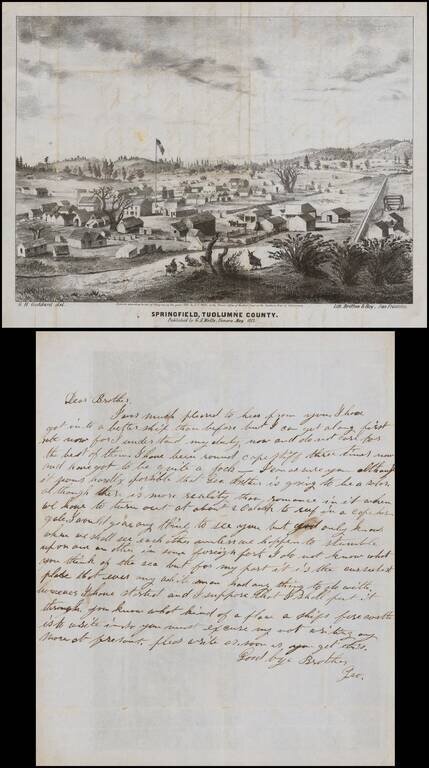 G. H. Goddard del.
Lith. Britton & Rey, San Francisco.
SPRINGFIELD, TUOLUMNE COUNTY.
Published by G. S. Wells, Sonora, May 185
Dear Brother.
I was much pleased to hear from you I have
got into a better ship than before but I can get along first
rate now for I understand my duty now and do not care for
the best of them I have been round cape three times now
and have got to be quite a I assure you although
it seems hardly possible that Geo is going to be a
although there is more reality than romance in it when
we have to turn out at about 2 o'clock to in a cape horn
gale I would give any thing to see you but god only knows
where we shall see each other unless we happen to stumble
upon one an other in some foreign port I do not know what
you think of the sea but for my part it is the cursedest
place that ever any white man had any thing to do with
however I have started and I suppose that I shall put it
through you know what kind of a place a ships forecastle
is to write in so you must excuse my not writing any
more at present, pleas write as soon as you get this.
Good bye Brother
Geo.